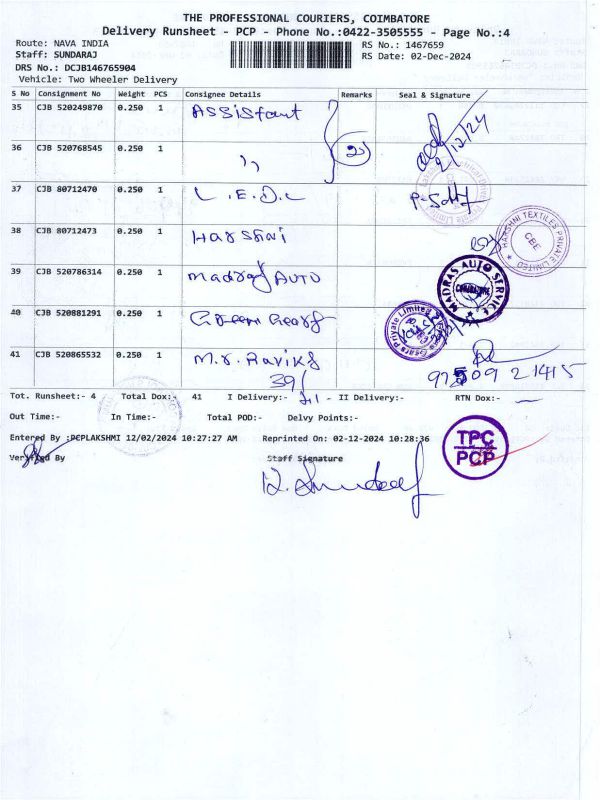 THE PROFESSIONAL COURIERS, COIMBATORE
Delivery Runsheet - PCP - Phone No.:0422-3505555 - Page No.:4
Route: NAVA INDIA RS No.: 1467659
Staff: SUNDARAJ RS Date: 02-Dec-2024
DRS No.: DCJB146765904
Vehicle: Two Wheeler Delivery
S No Consignment No Weight PCS Consignee Details Remarks Seal & Signature
35 CJB 520249870 0.250 1 Assistant 2/12/24
36 CJB 520768545 0.250 1 ,, 2
37 CJB 80712470 0.250 1 L.E.D.L
38 CJB 80712473 0.250 1 Harshni
HARSHNI TEXTILES PRIVATE LIMITED CBE
39 CJB 520786314 0.250 1 Madras AUTO
MADRAS AUTO SERVICE COIMBATORE
40 CJB 520881291 0.250 1 Green Gears
Gears Private Limited
41 CJB 520865532 0.250 1 M.r. Ravik
39/ 97509 21415
Tot. Runsheet:- 4 Total Dox:- 41 I Delivery:- 41 - II Delivery:- RTN Dox:-
Out Time:- In Time:- Total POD:- Delvy Points:-
Entered By :PCPLAKSHMI 12/02/2024 10:27:27 AM Reprinted On: 02-12-2024 10:28:36
TPC
PCP
Verified By Staff Signature